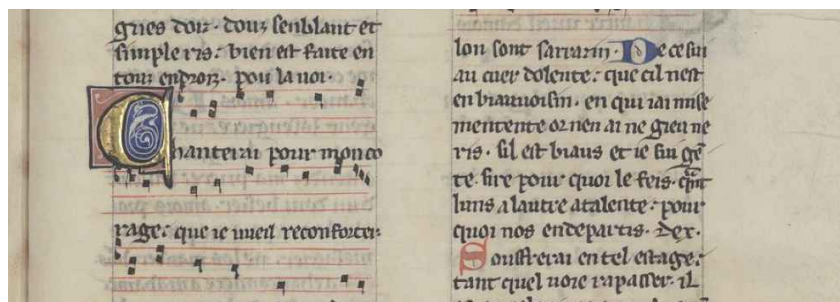 gries doiz. douz senblant et
simple ris: bien est faite en
touz endroiz. pou la voi.
Chanterai pour mon co
rage: que ie vueil reconforter.
lon sont sarrazin. De ce sui
au cuer dolente: que cil nest
en biauvoisin. en qui iai mise
mentente or nen ai ne gieu ne
ris. sil est biaus et ie sui gẽ
te. sire pour quoi le feis. quãt
luns a lautre atalente: pour
quoi nos endepartis. Dex.
Souffrerai en tel estage:
tant quel voie rapasser. il